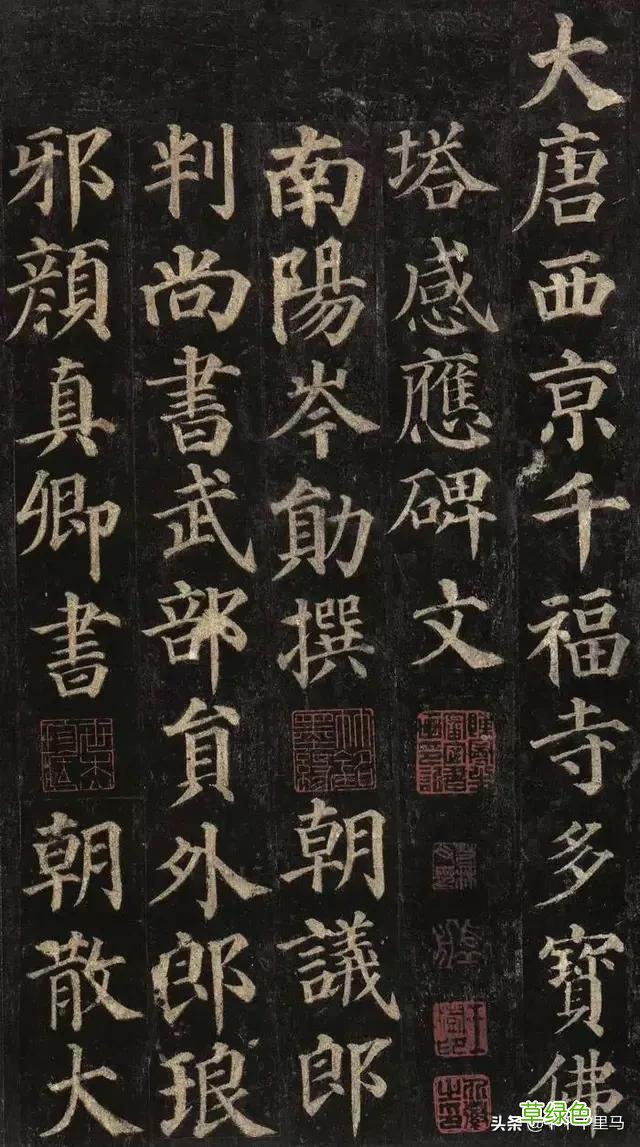 大唐西京千福寺多寳佛
塔感應碑文
南陽岑勛撰
朝議郎
判尚書武部貟外郎琅
邪顔真卿書
朝散大
草绿色
头条
里马